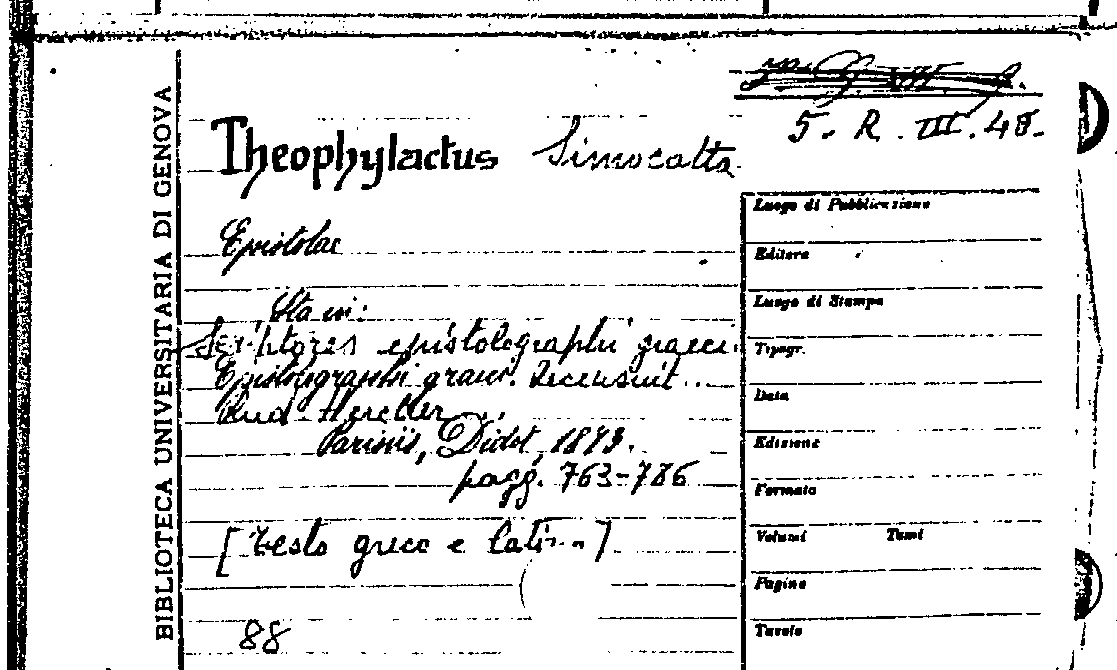 5. R. III. 48.
Theophylactus Simocatta
Epistolae
Sta in:
Scriptores epistolographi graeci.
Epistolographi graeci. Recensuit ..
Rud. Hercher ...
Parisiis, Didot, 1873.
pagg. 763-786
[Testo greco e latino]
88
BIBLIOTECA UNIVERSITARIA DI GENOVA
Luogo di Pubblicazione
Editore
Luogo di Stampa
Tipogr.
Data
Edizione
Formato
Volumi Tomi
Pagine
Tavole